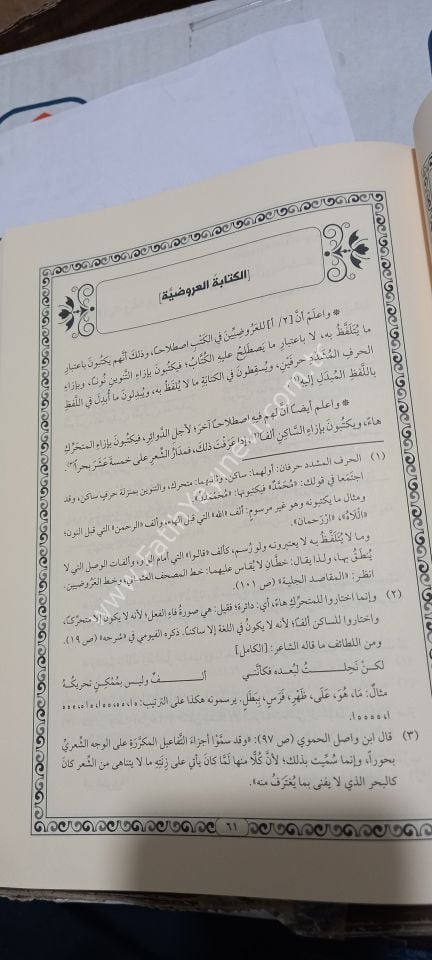 [الكتابة العروضيَّة]
* واعلَمْ أنَّ [٢/ أ] للعَرُوضِيِّينَ في الكَتْبِ اصطلاحاً، وذلكَ أنَّهم يكتبونَ باعتبارِ
ما يُتَلَفَّظُ به، لا باعتبارِ ما يَصطلِحُ عليهِ الكُتَّابُ؛ فيكتبونَ بإزاءِ التَّنوينِ نُوناً، وبإزاءِ
الحرفِ المُشَدَّدِ حرفَينِ، ويُسقِطونَ في الكتابةِ ما لا يُلفَظُ به، ويُبدِلونَ ما أُبدِلَ في اللَّفظِ
باللَّفظِ المُبدَلِ إليهِ
* واعلم أيضاً أنَّ لهم فيهِ اصطلاحاً آخرَ؛ لأجلِ الدَّوائرِ، فيكتبونَ بإزاءِ المتحرِّكِ
هاءً، ويكتبُونَ بإزاءِ السَّاكنِ ألفاً، إذا عَرَفْتَ ذلك، فمَدَارُ الشِّعرِ على خمسةَ عَشَرَ بحراً(٣).
(١) الحرف المشدد حرفان: أولهما: ساكن، وثانيهما: متحرك، والتنوين بمنزلة حرفٍ ساكن، وقد
اجتمَعا في قولك: «مُحَمَّدٌ» فيكتبونها: «مُحَمْمَدُنْ».
ومثال ما يكتبونه وهو غير مرسومٍ: ألف «الله» التي قبل الهاء، وألف «الرحمن» التي قبل النون؛
«اَللَّاهُ»، «اَرْرَحمان».
وما لا يُتلَفَّظُ به لا يعتبرونه ولو رُسم، كألف «قالوا» التي أمام الواو، وألفات الوصل التي لا
يُنطَقُ بها، ولذا يقال: خطَّان لا يُقاس عليهما: خط المصحف العثماني، وخط العَرُوضيين.
انظر: «المقاصد الجلية» (ص ١٠١).
(٢) وإنما اختاروا للمتحركِ هاءً، أي: دائرة؛ فقيل: هي صورة فاءِ الفعل؛ لأنه لا يكون إلا متحركاً،
واختاروا للساكن ألفاً؛ لأنه لا يكونُ في اللغة إلا ساكناً. ذكره الفيومي في «شرحه» (ص ١٩).
ومن اللطائف ما قاله الشاعر: [الكامل]
لكنْ نَحِلْتُ لبُعده فكأنَّني ألفٌ وليس بمُمْكنٍ تحريكُهُ
مثالٌ: مَا، هُوَ، عَلَى، ظَهْرِ، فَرَسٍ، بِبَطَلٍ. يرسمونه هكذا على الترتيب:
(٣) قال ابن واصل الحموي (ص ٩٧): «وقد سمَّوْا أجزاءَ التَّفاعيل المكرَّرَة على الوجه الشعريِّ
بحوراً، وإنما سُمِّيت بذلك؛ لأنَّ كُلًّا منها لَمَّا كانَ يأتي على زِنَتِهِ ما لا يتناهى من الشِّعر كانَ
كالبحر الذي لا يفنى بما يُغتَرَفُ منه».
٦١
www.FatihYayinevi.com